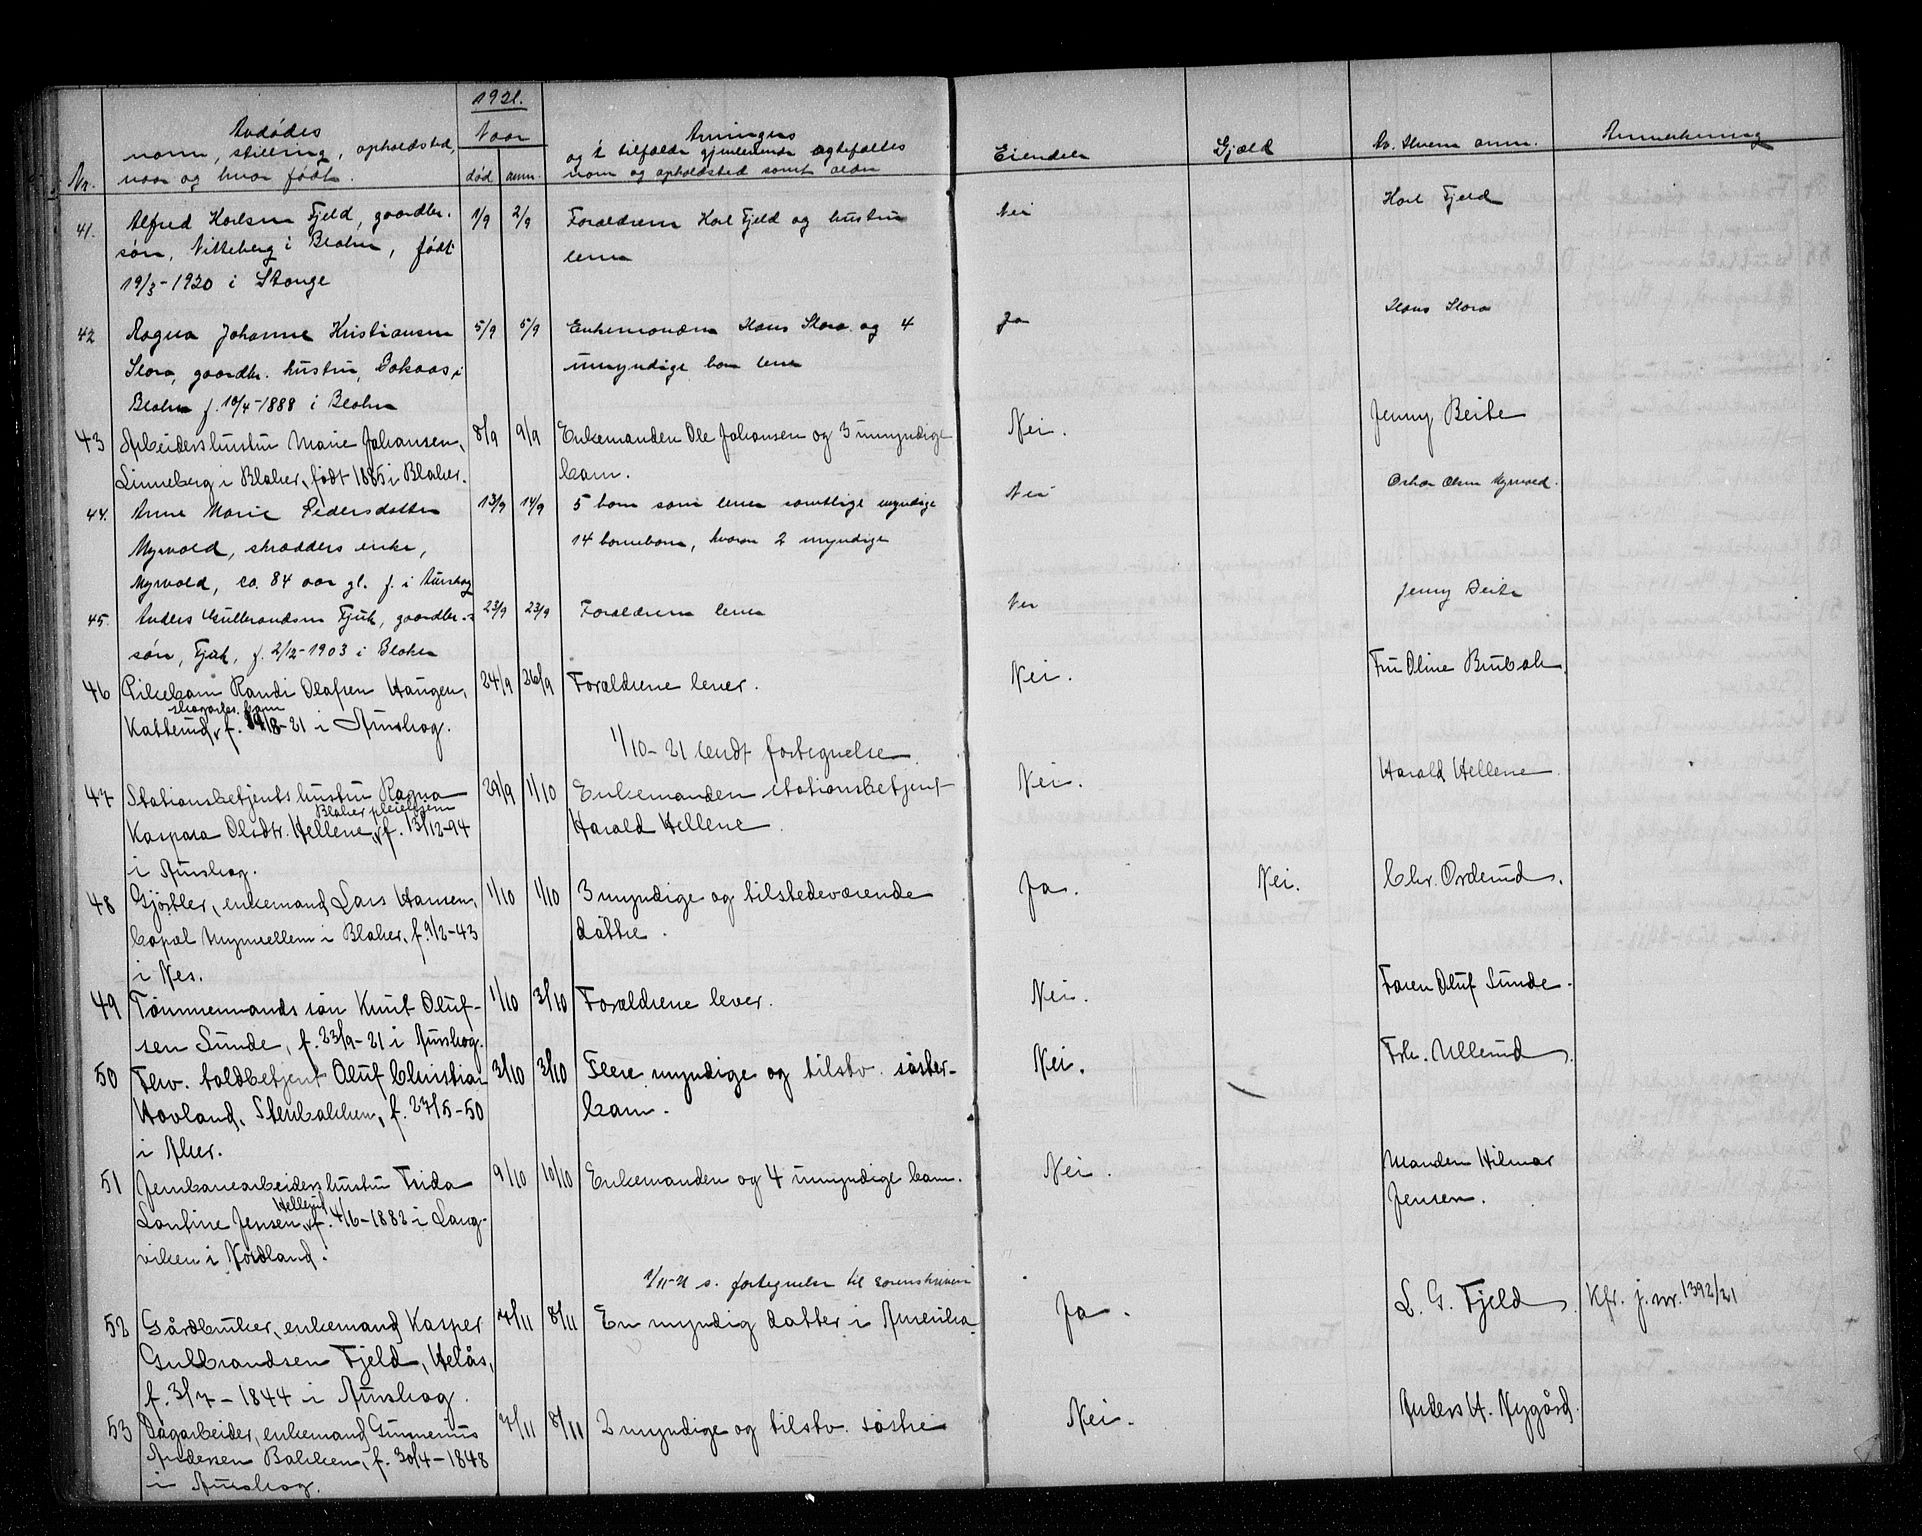 1921.
Nr. Avdødes
navn, stilling, opholdsted,
naar og hvor født.
Naar
død anm.
Arvingers
og i tilfælde gjenlevende ægtefælles
navn og opholdsted samt alder
Eiendele
Gjæld
Av hvem anm.
Anmerkning
41. Alfred Karlsen Fjeld, gaardbr. 1/9 2/9 Forældrene Karl Fjeld og hustru Nei Karl Fjeld
søn, Nitteberg i Blaker, født lever
19/3-1920 i Stange
42 Ragna Johanne Kristiansen 5/9 5/9 Enkemanden Hans Slora og 4 Ja Hans Slora
Slora, gaardbr. hustru, Bakaas i umyndige barn lever
Blaker f. 10/4-1888 i Blaker
43 Arbeiderhustru Marie Johansen, 8/9 9/9 Enkemanden Ole Johansen og 3 umyndige Nei. Jenny Beite
Linneberg i Blaker, født 1885 i Blaker. barn.
44. Anne Marie Pedersdatter 13/9 14/9 5 barn som lever samtlige myndige Nei Oskar Olsen Myrvold.
Myrvold, skrædders enke, 14 barnebarn, hvorav 2 myndige
Myrvold, ca. 84 aar gl. f. i Aurskog
45. Anders Gulbrandsen Fjuk, gaardbr. 23/9 23/9 Forældrene lever Nei Jenny Beite
søn, Fjuk, f. 2/12-1903 i Blaker
46 Pikebarn Randi Olafsen Haugen, 24/9 26/9 Forældrene lever. Nei. Fru Oline Brubak.
skogarb. barn
Katterud, f. 14/8-21 i Aurskog.
1/10-21 sendt fortegnelse
47 Stationsbetjents hustru Ragna 29/9 1/10 Enkemanden stationsbetjent Nei. Harald Hellene
Blaker pleiehjem
Kaspara Olsdtr. Hellene, f. 13/12-94 Harald Hellene.
i Aurskog.
48 Gjørtler, enkemand Lars Hansen, 1/10 1/10 3 myndige og tilstedeværende Ja. Nei. Chr. Orderud.
Myrvollen i Blaker, f. 9/2-43 døttre.
i Nes.
49 Tømmermands søn Knut Oluf- 1/10 3/10 Forældrene lever. Nei. Faren Oluf Sunde.
sen Sunde, f. 23/9-21 i Aurskog.
50 Fhv. toldbetjent Oluf Christian 3/10 3/10 Flere myndige og tilstv. søster- Nei. Frk. Ullerud.
Hovland, Stenbakken, f. 27/5-50 barn.
i Aker.
51 Jernbanearbeiders hustru Frida 9/10 10/10 Enkemanden og 4 umyndige barn. Nei. Manden Hilmar
Hellerud
Lantine Jensen, f. 4/6-1882 i Lang- Jensen.
viken i Nordland.
9/11-21 s. fortegnelse til sorenskriveren
52 Gårdbruker, enkemand Kasper 7/11 8/11 En myndig datter i Amerika Ja. L. G. Fjeld. Kfr. j.nr. 1392/21
Gulbrandsen Fjeld, Helås,
f. 3/7-1844 i Aurskog.
53 Dagarbeider, enkemand Gunnerius 7/11 8/11 2 myndige og tilstv. søstre Nei. Anders H. Nygård.
Andersen Bakken, f. 30/4-1848
i Aurskog.